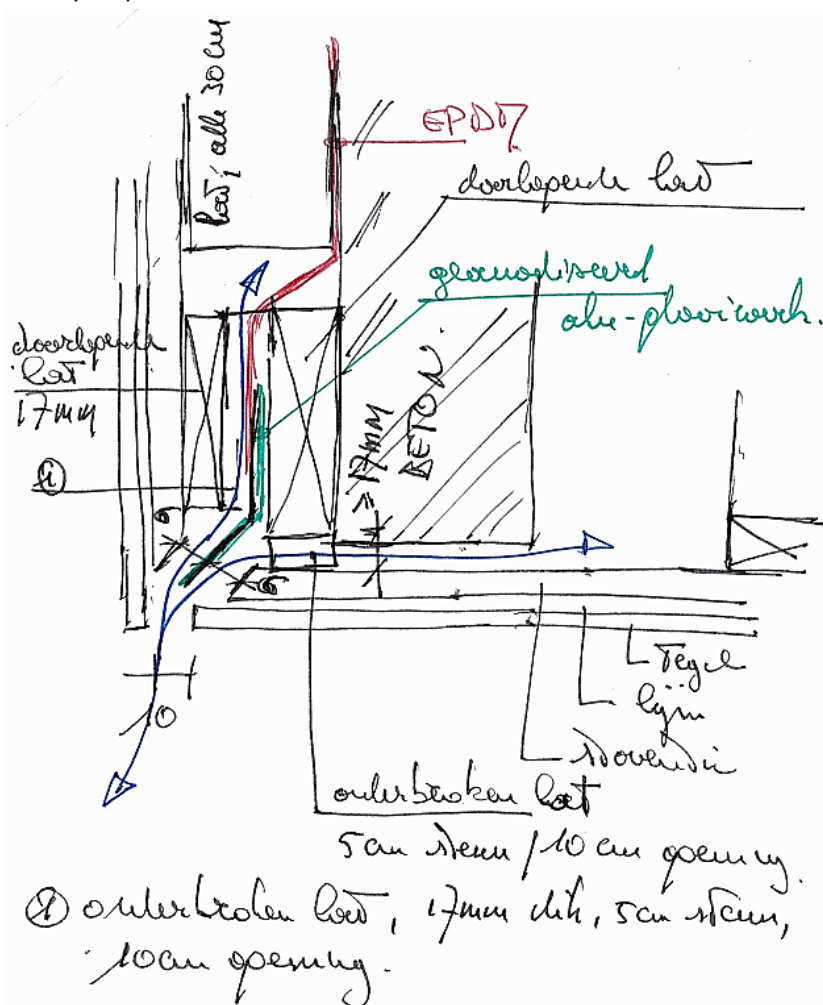 lat, alle 30 cm
EPDM
doorlopende lat
geanodiseerd
alu-plooiwerk.
doorlopende
lat
17mm
1
≥17MM
BETON.
6
6
10
Tegel
lijm
onderbroken lat
5cm steun / 10cm opening.
① onderbroken lat, 17mm dik, 5cm steun,
10cm opening.